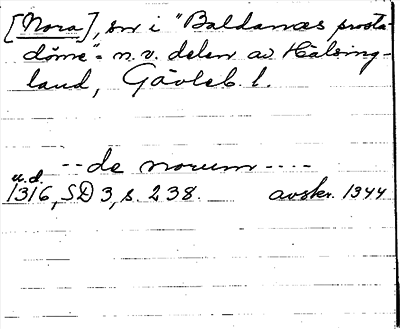 [Nora], sn i "Baldanæs prosta-
döme" = n. v. delen av Hälsing-
land, Gävleb. l.
-- de norum ----
u. d.
1316, SD 3, s. 238. avskr. 1344